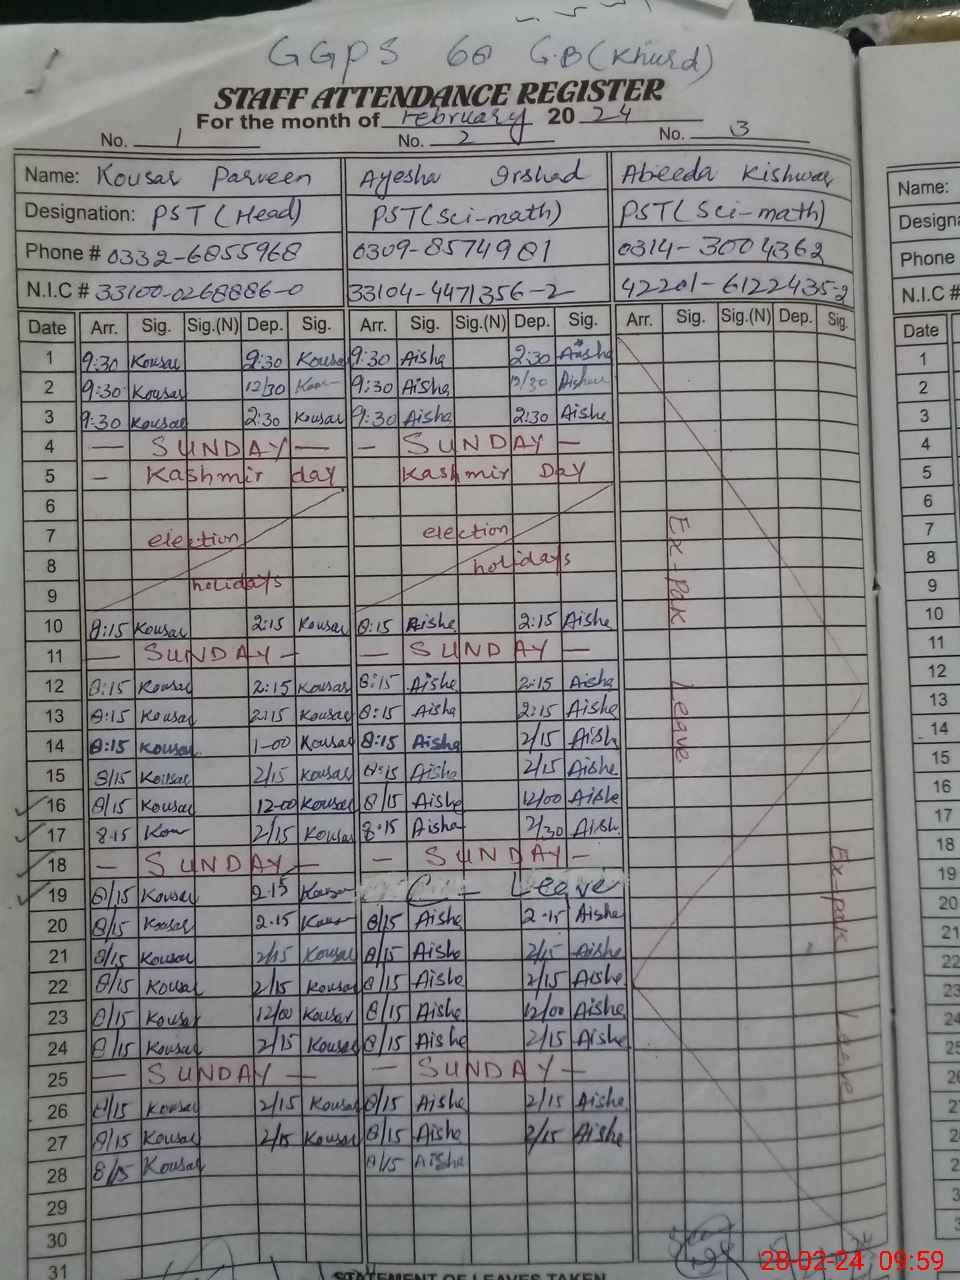 GGPS 68 G.B (Khurd)
STAFF ATTENDANCE REGISTER
For the month of February 2024
No. 1 No. 2 No. 3
Name: Kousar Parveen Ayesha Irshad Abeeda Kishwar
Designation: PST (Head) PST (Sci-math) PST (Sci-math)
Phone # 0332-6855968 0309-8574981 0314-3004362
N.I.C # 33100-0268886-0 33104-4471356-2 42201-6122435-2
Date Arr. Sig. Sig.(N) Dep. Sig. Arr. Sig. Sig.(N) Dep. Sig. Arr. Sig. Sig.(N) Dep. Sig.
1 9:30 Kousar 2:30 Kousar 9:30 Aisha 2:30 Aisha
2 9:30 Kousar 12/30 9:30 Aisha 12/30
3 9:30 Kousar 2:30 Kousar 9:30 Aisha 2:30 Aisha
4 — SUNDAY — — SUNDAY —
5 — Kashmir day Kashmir Day
6
7 election election
8 holidays
9 holidays
10 8:15 Kousar 2:15 Kousar 8:15 Aisha 2:15 Aisha
11 — SUNDAY — — SUNDAY —
12 8:15 Kousar 2:15 Kousar 8:15 Aisha 2:15 Aisha
13 8:15 Kousar 2:15 Kousar 8:15 Aisha 2:15 Aisha
14 8:15 Kousar 1-00 Kousar 8:15 Aisha 2/15 Aisha
15 8/15 Kousar 2/15 Kousar 8:15 Aisha 2/15 Aisha
16 8/15 Kousar 12-00 Kousar 8/15 Aisha 12/00 Aisha
17 8.15 2/15 Kousar 8.15 Aisha 2/30 Aisha
18 — SUNDAY — — SUNDAY —
19 8/15 Kousar 2.15 Kousar C — Leave
20 8/15 Kousar 2.15 8/15 Aisha 2.15 Aisha
21 8/15 Kousar 2/15 Kousar 8/15 Aisha 2/15 Aisha
22 8/15 Kousar 2/15 Kousar 8/15 Aisha 2/15 Aisha
23 8/15 Kousar 12/00 Kousar 8/15 Aisha 12/00 Aisha
24 8/15 Kousar 2/15 Kousar 8/15 Aisha 2/15 Aisha
25 — SUNDAY — — SUNDAY —
26 8/15 Kousar 2/15 Kousar 8/15 Aisha 2/15 Aisha
27 8/15 Kousar 2/15 Kousar 8/15 Aisha 2/15 Aisha
28 8/15 Kousar 8/15 Aisha
29
30
31
Ex-Pak Leave.
Ex-pak Leave
STATEMENT OF LEAVES TAKEN
Name:
Phone
N.I.C #
Date
1
2
3
4
5
6
7
8
9
10
11
12
13
14
15
16
17
18
19
20
21
22
23
28-02-24 09:59